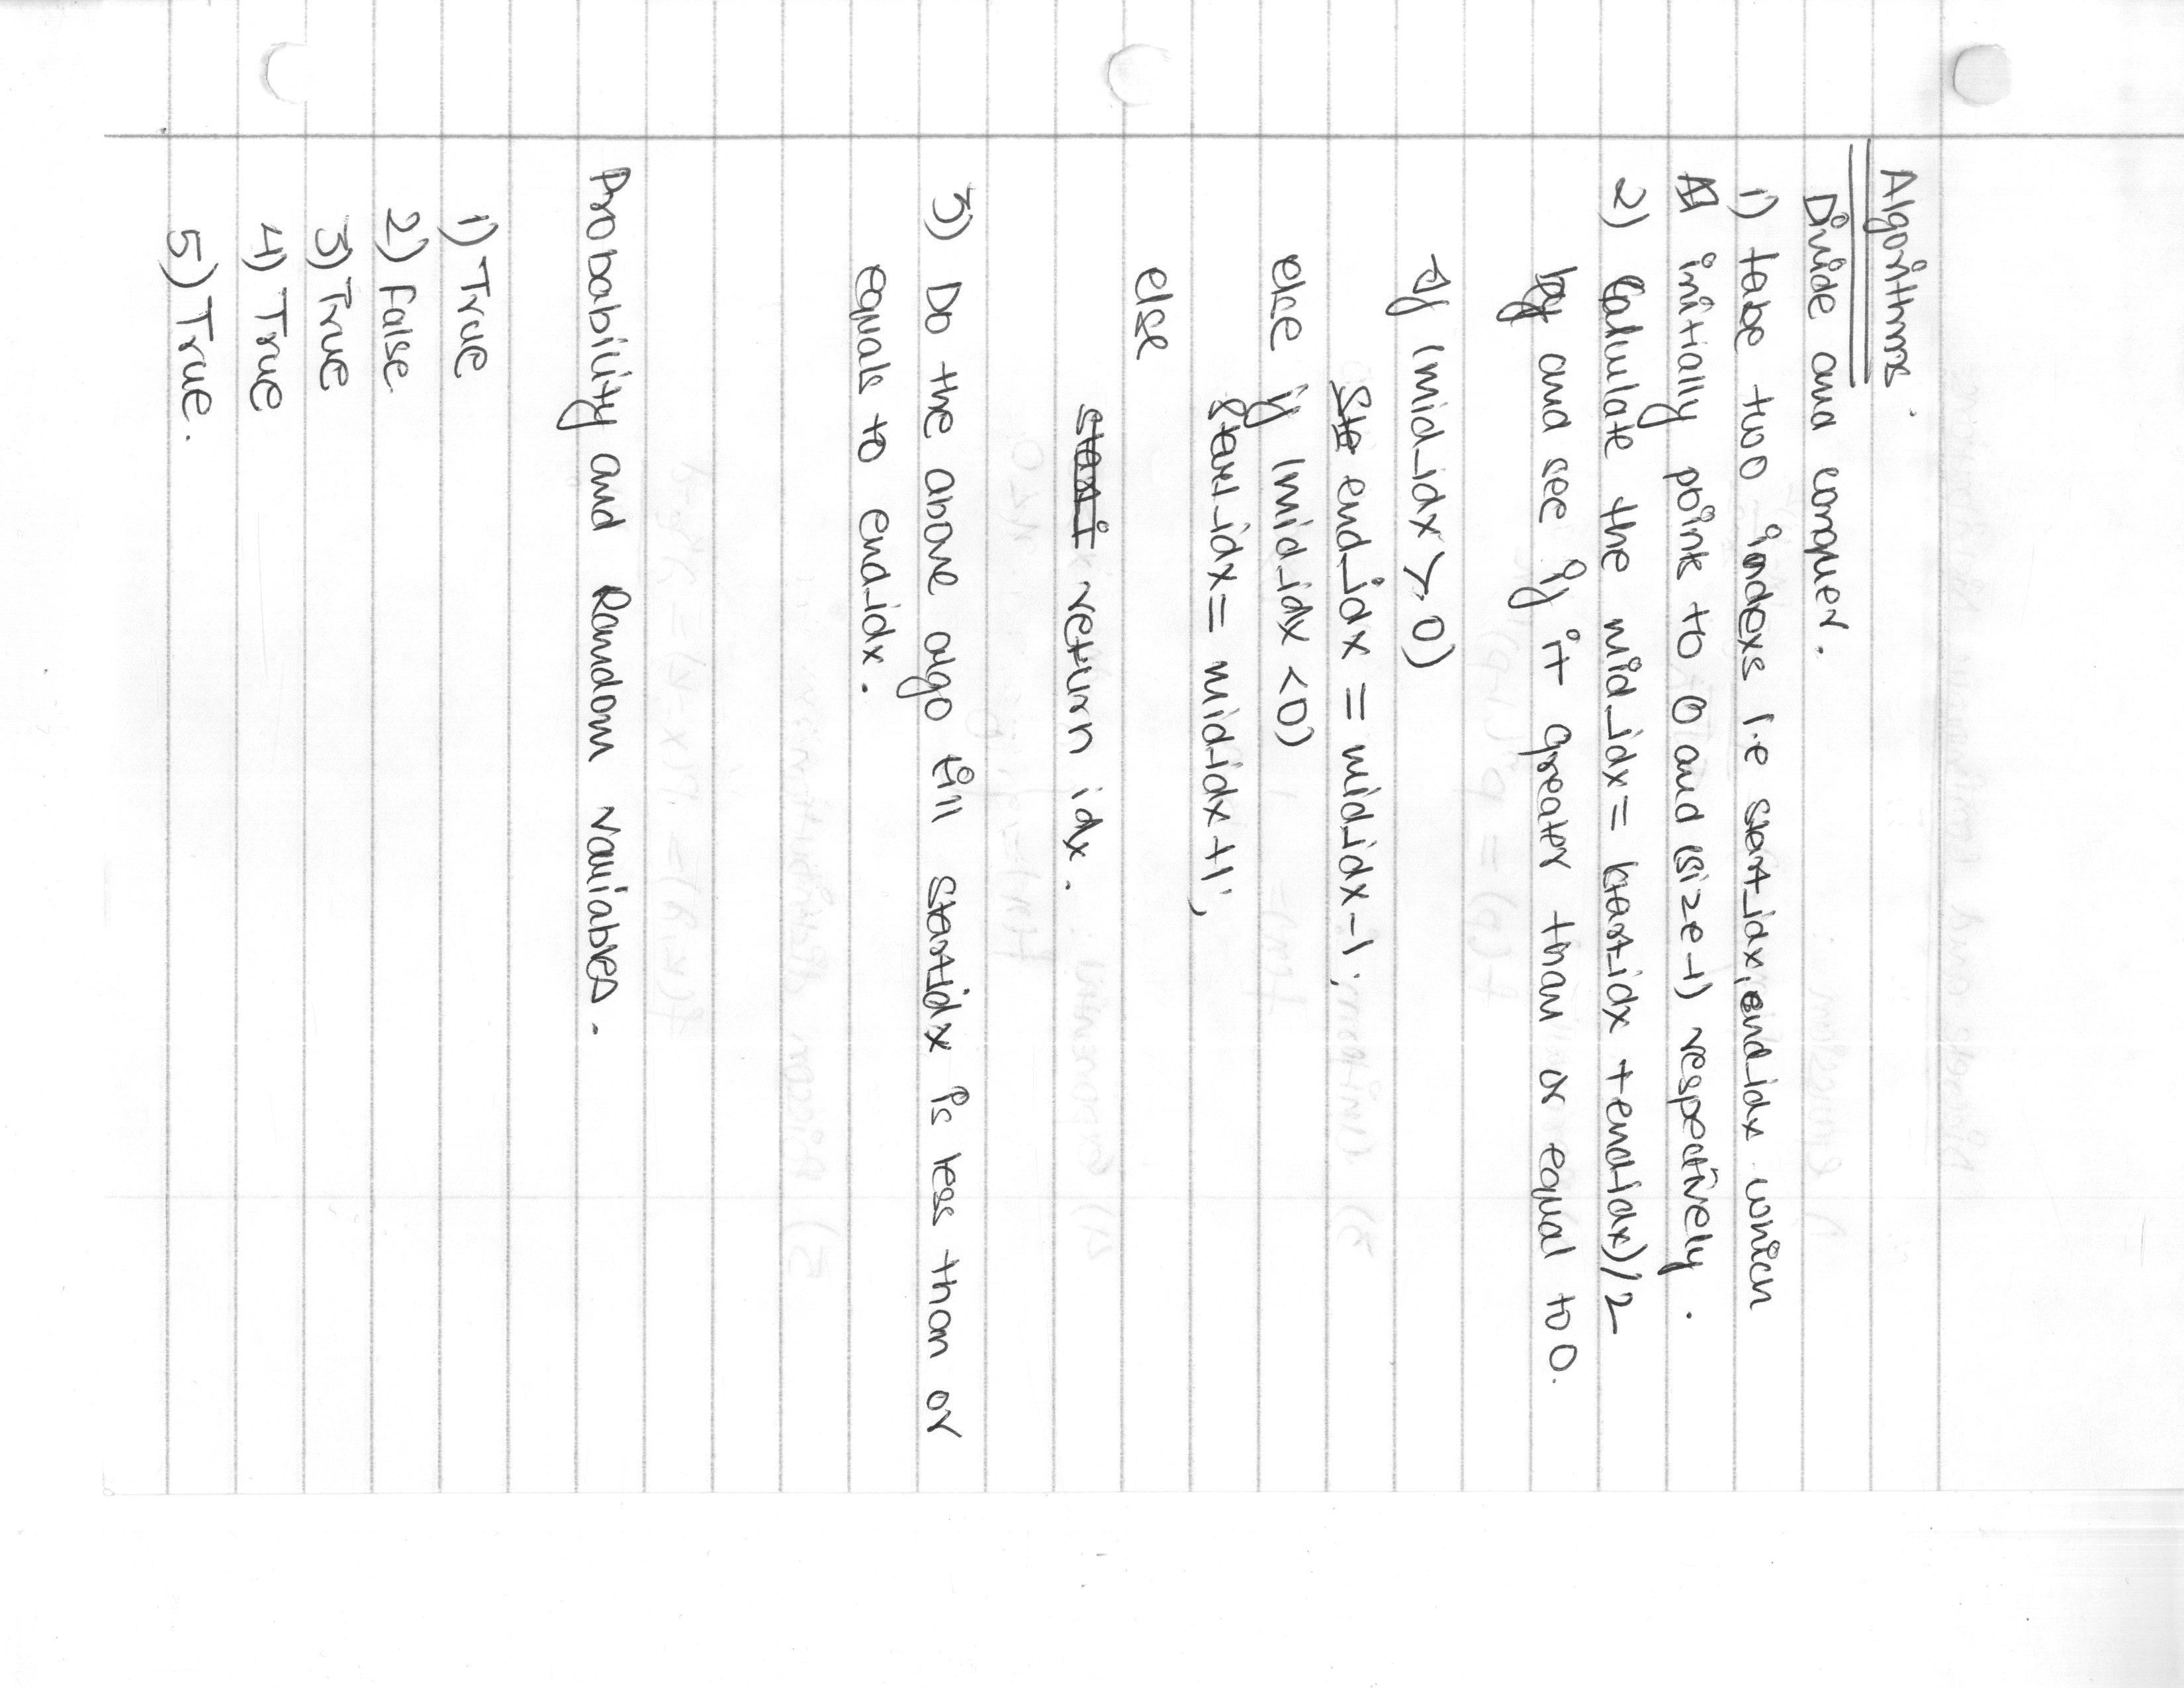 Algorithms
Divide and conquer.
1) take two indexs i.e start_idx, end_idx which
initially point to 0 and (size-1) respectively.
2) Calculate the mid_idx = (start_idx + end_idx)/2
and see if it greater than or equal to 0.
if (mid_idx > 0)
end_idx = mid_idx-1;
else if (mid_idx <0)
start_idx = mid_idx +1;
else
start return idx.
3) Do the above algo till start_idx is less than or
equals to end_idx.
Probability and Random variables.
1) True
2) False
3) True
4) True
5) True.